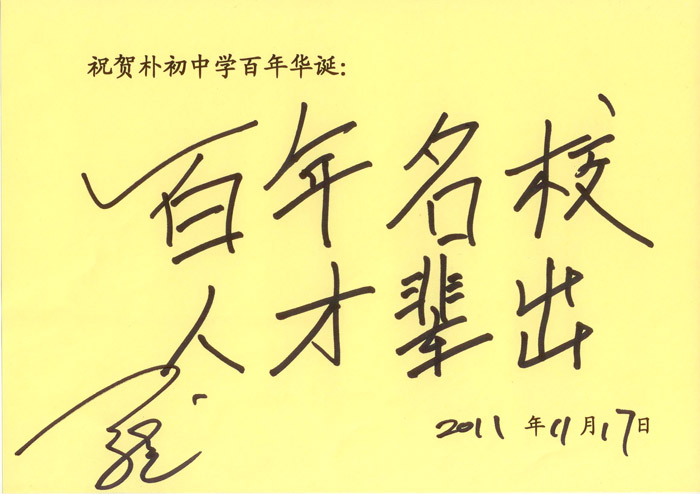 祝贺朴初中学百年华诞:
百年名校
人才辈出
2011年11月17日